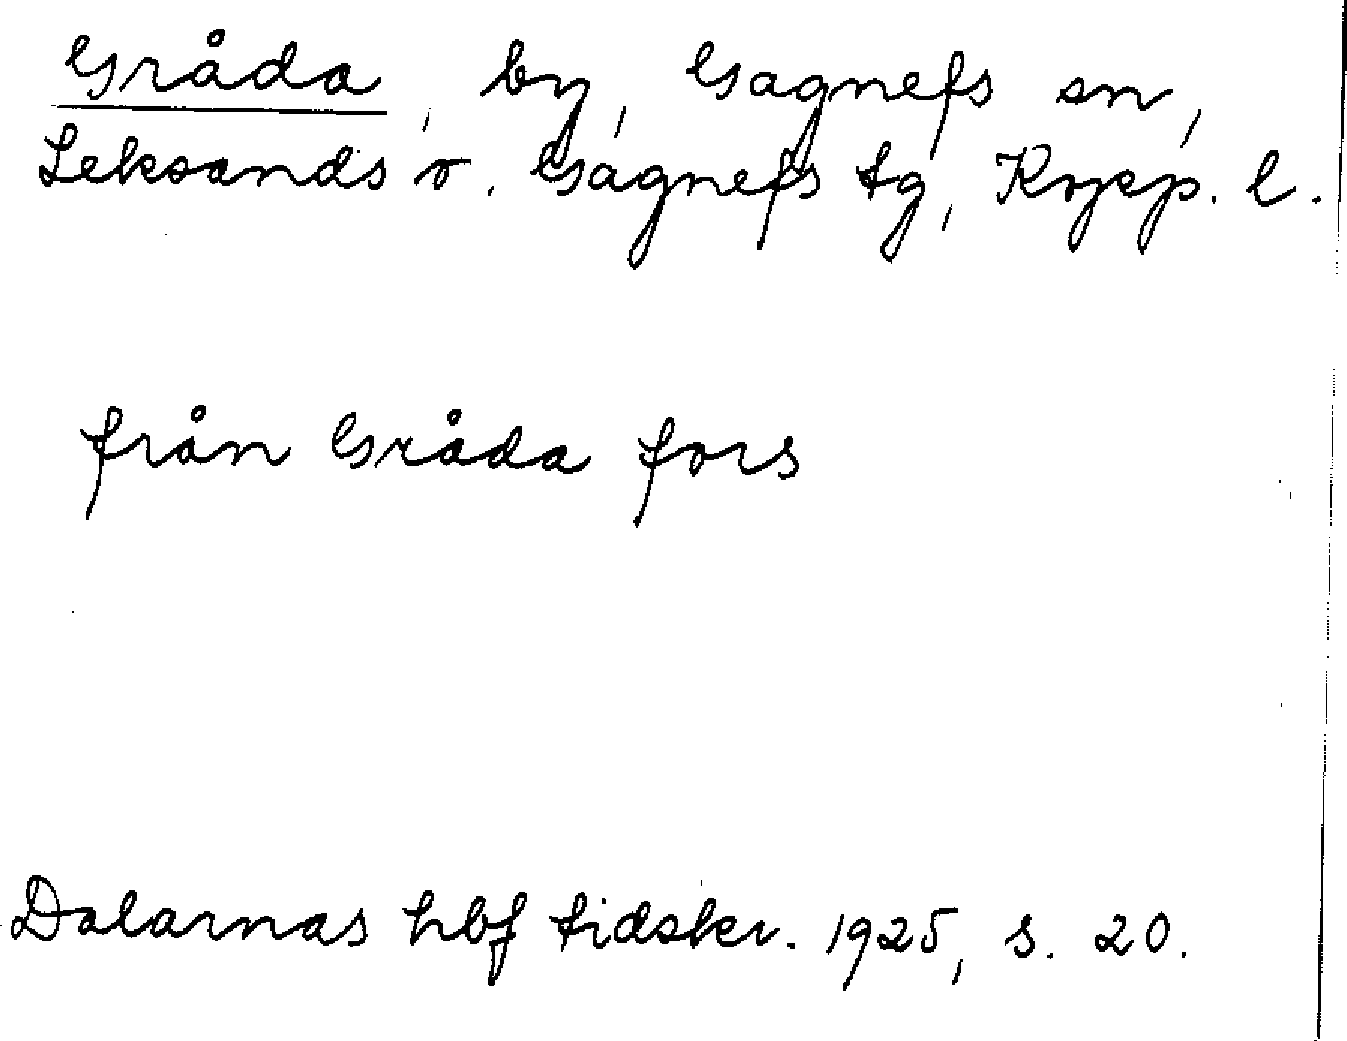 Gråda, by, Gagnefs sn,
Leksands o. Gagnefs tg, Kopp. l.
från Gråda fors
Dalarnas hbf tidskr. 1925, s. 20.